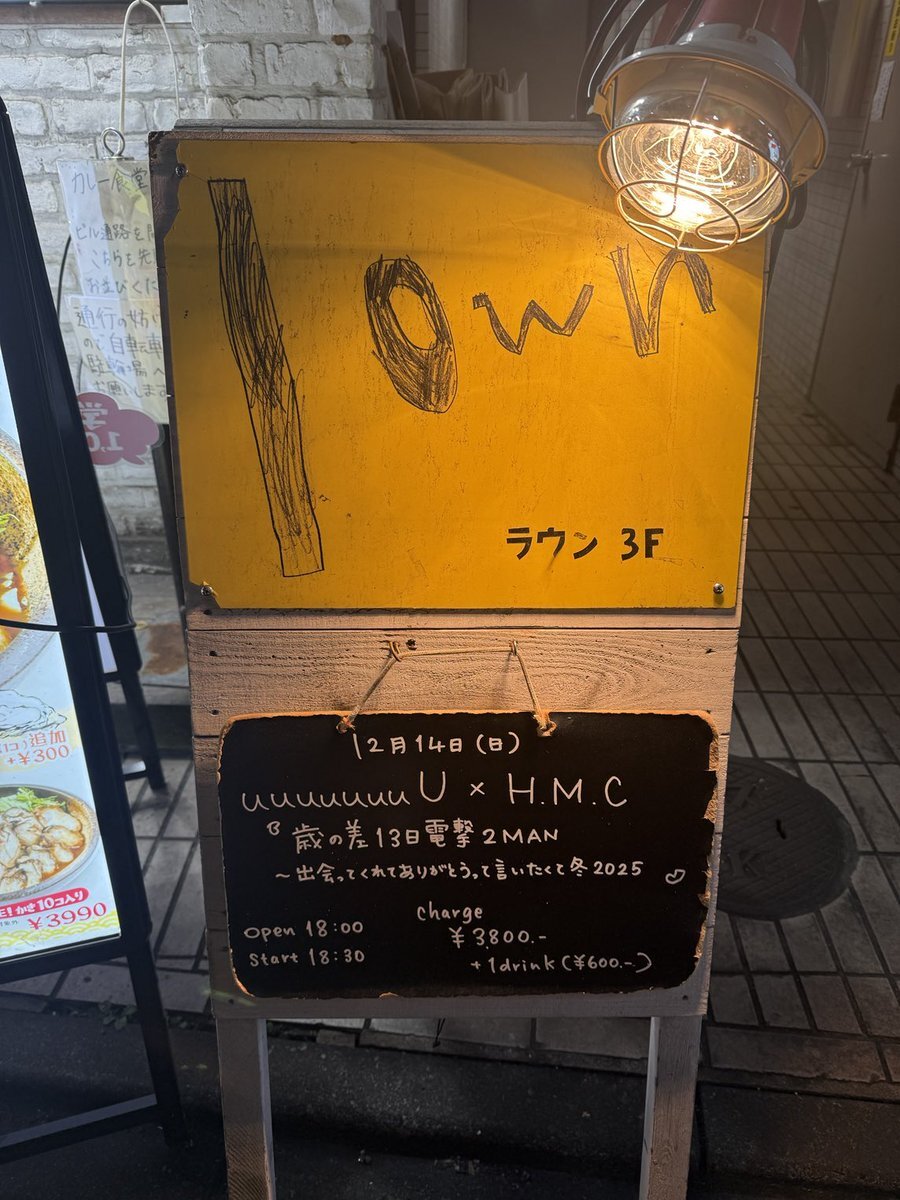 lown
ラウン 3F
12月14日(日)
uuuuuuuU × H.M.C
歳の差13日電撃2MAN
～出会ってくれてありがとうって言いたくて冬2025
open 18:00
start 18:30
charge
¥3800.-
+1drink(¥600.-)
カレー食堂
ビル通路を
こちらを先
お並びくだ
通行の妨げ
ので自転車
駐輪場へ
お願いします
追加
+¥300
かき10コ入り
¥3990